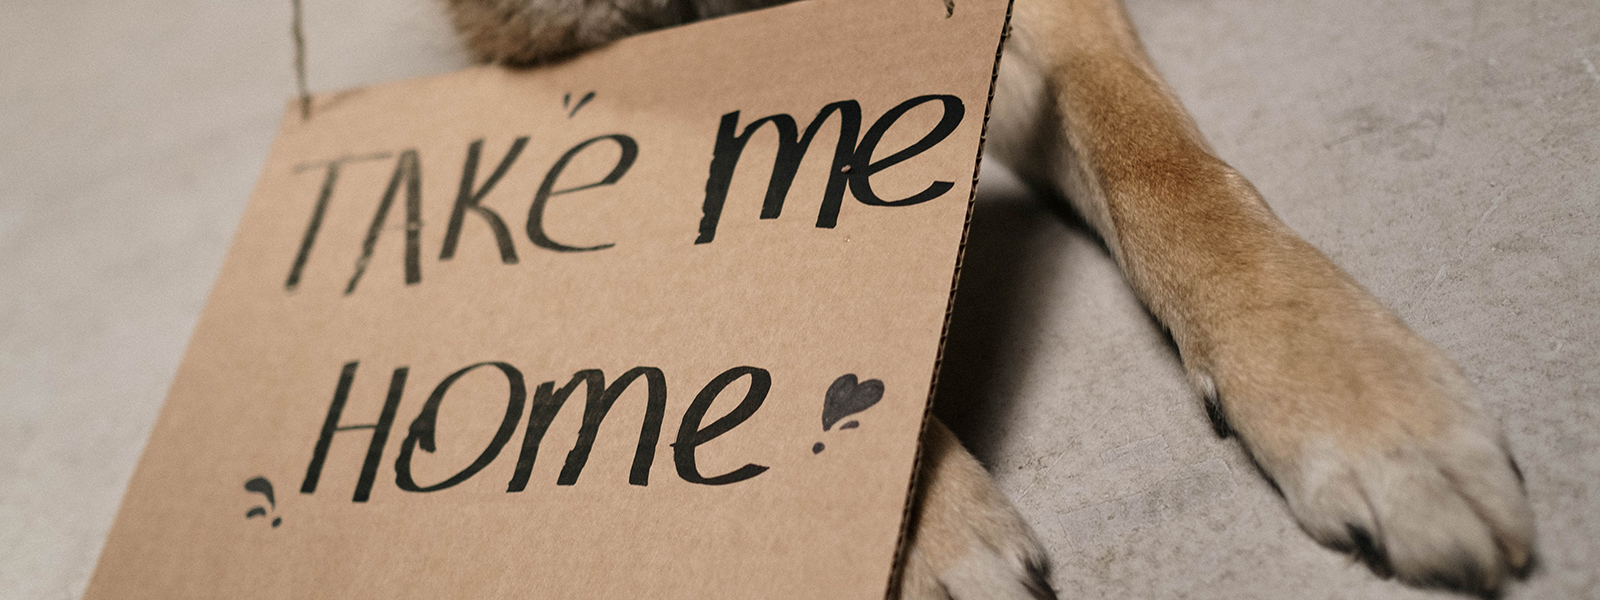 TAKe me
HOme